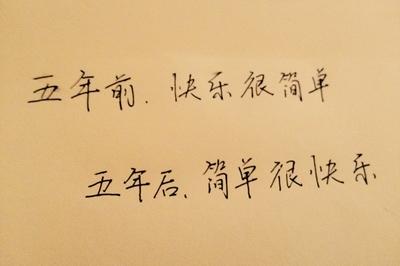 五年前、快乐很简单
五年后、简单很快乐